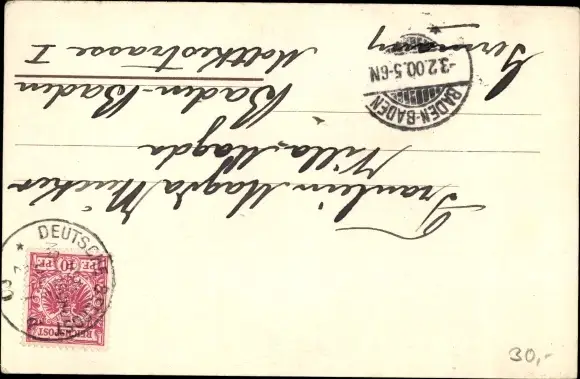 Fräulein Magda Mücker
Villa Magda
Baden-Baden
Moltkestrasse I
Germany
BADEN-BADEN
-3.2.00.5-6N
DEUTSCHE
10 PF 10 PF
REICHSPOST
30,-